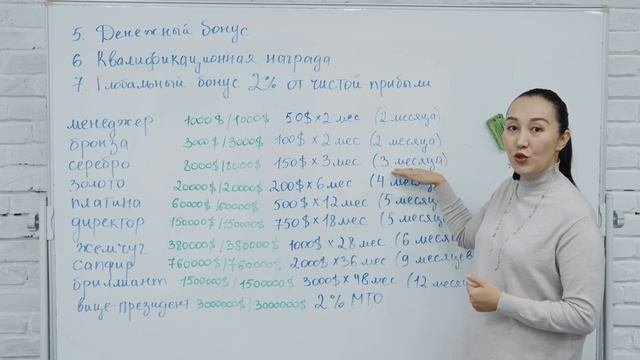 5. Денежный бонус
6. Квалификационная награда
7. Глобальный бонус 2% от чистой прибыли
менеджер 1000$/1000$ 50$ × 2 мес (2 месяца)
бронза 3000$/3000$ 100$ × 2 мес (2 месяца)
серебро 8000$/8000$ 150$ × 3 мес (3 месяца)
золото 20000$/20000$ 200$ × 6 мес (4 месяца
платина 60000$/60000$ 500$ × 12 мес (5 меся
директор 150000$/150000$ 750$ × 18 мес (5 месяц
жемчуг 380000$/380000$ 1000$ × 28 мес (6 месяце
сапфир 760000$/760000$ 2000$ × 36 мес (9 месяцев
бриллиант 1500000$/1500000$ 3000$ × 48 мес (12 месяц
вице-президент 3000000$/3000000$ 2% МТО